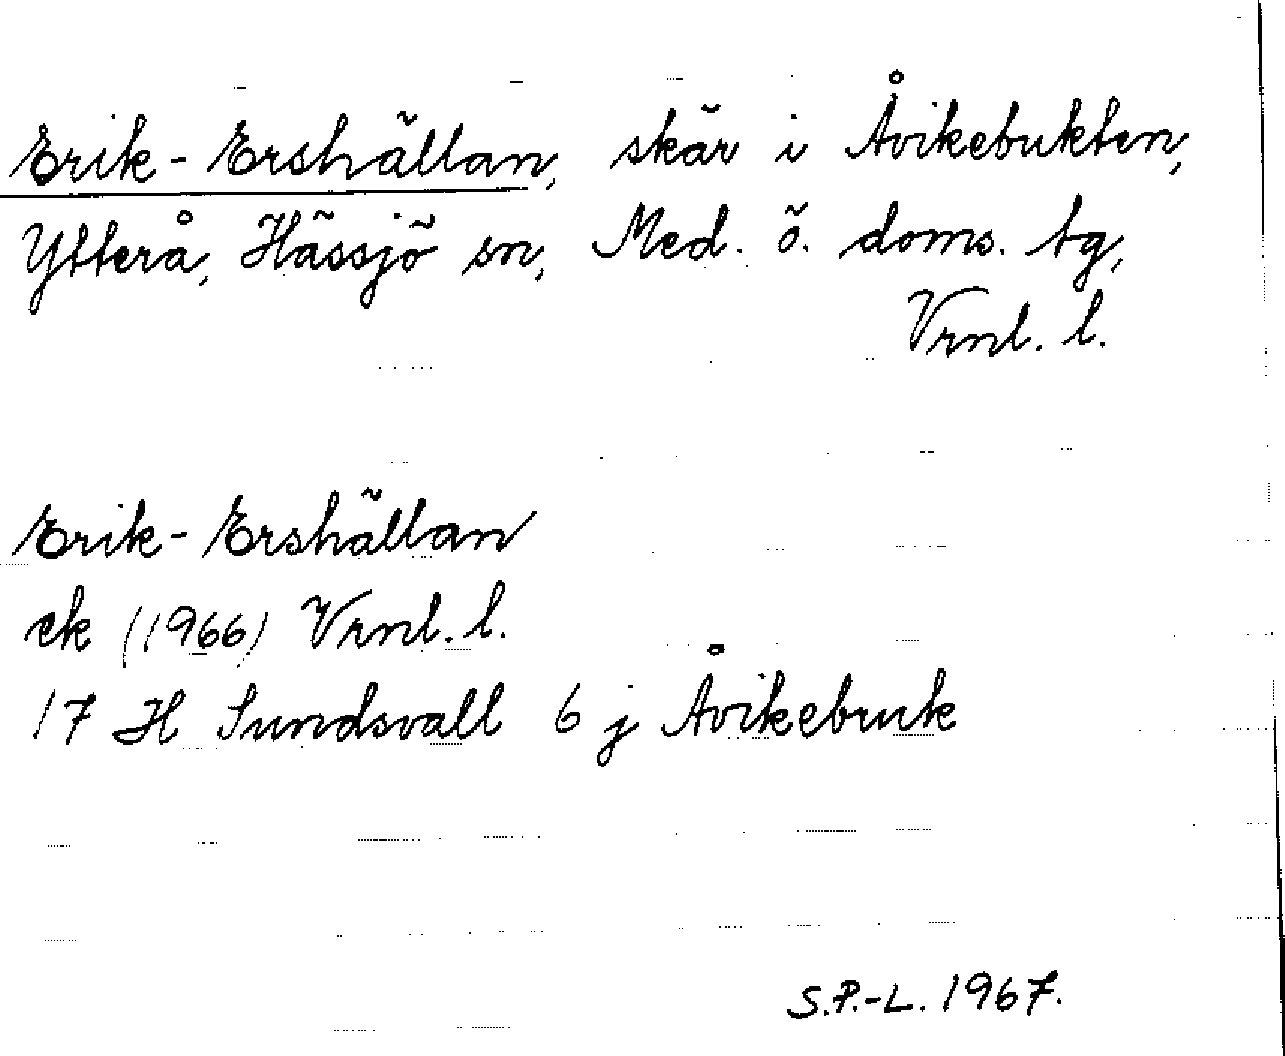 Erik-Ershällan, skär i Åvikebukten,
Ytterå, Hässjö sn, Med. ö. doms. tg,
Vrnl. l.
Erik-Ershällan
ek (1966) Vrnl. l.
17 H Sundsvall 6 j Åvikebruk
S.P.-L. 1967.